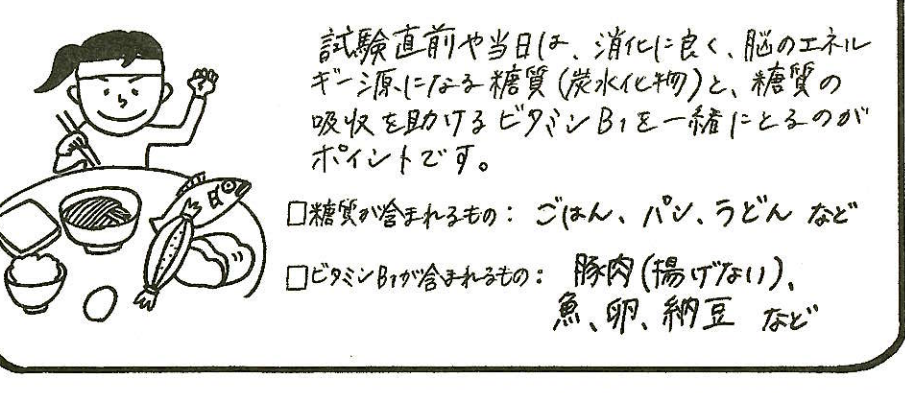 試験直前や当日は、消化に良く、脳のエネル
ギー源になる糖質(炭水化物)と、糖質の
吸収を助けるビタミンB1を一緒にとるのが
ポイントです。
□糖質が含まれるもの: ごはん、パン、うどん など
□ビタミンB1が含まれるもの: 豚肉(揚げない)、
魚、卵、納豆 など